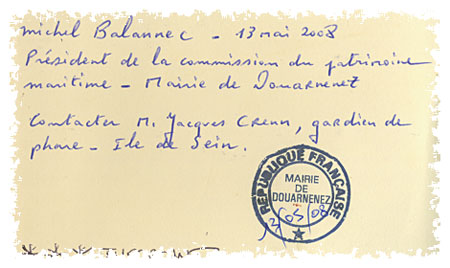 michel Balannec - 13 mai 2008
Président de la commission du patrimoine
maritime - Mairie de Douarnenez
Contacter M. Jacques Crenn, gardien de
phare - Ile de Sein.
RÉPUBLIQUE FRANÇAISE
MAIRIE
DE
DOUARNENEZ
12/05/08